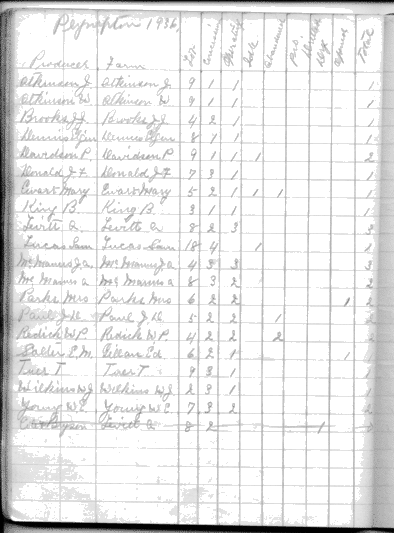 1936
Producer Farm Lot Concession Operating Sale Abandoned Total
Atkinson J. Atkinson J. 9 1 1 1
Atkinson W. Atkinson W. 9 1 1 1
Brooks J.J. Brooks J.J. 4 2 1 1
Dennis Dennis 8 1 1 1
Davidson P. Davidson P. 9 1 1 1 2
Donald J.F. Donald J.F. 7 3 1 1
Ewart Mary Ewart Mary 5 2 1 1 1 1
King B. King B. 3 1 1 1
Levitt A. Levitt A. 8 2 3 3
Lucas Sam Lucas Sam 18 4 1 1
McManus J.A. McManus J.A. 4 3 3 3
McManus A McManus A 8 3 2 2
Parks Mrs Parks Mrs 6 2 2 1 2
Paul J.D. Paul J.D. 5 2 2 1
Redick W.P. Redick W.P. 4 2 2 2
E.M. Ed 6 2 1 1
Tuer T. Tuer T. 9 3 1 1
Wilkins W.J. Wilkins W.J. 2 3 1 1
Young W.E. Young W.E. 7 3 2 2
Levitt A 8 2 1